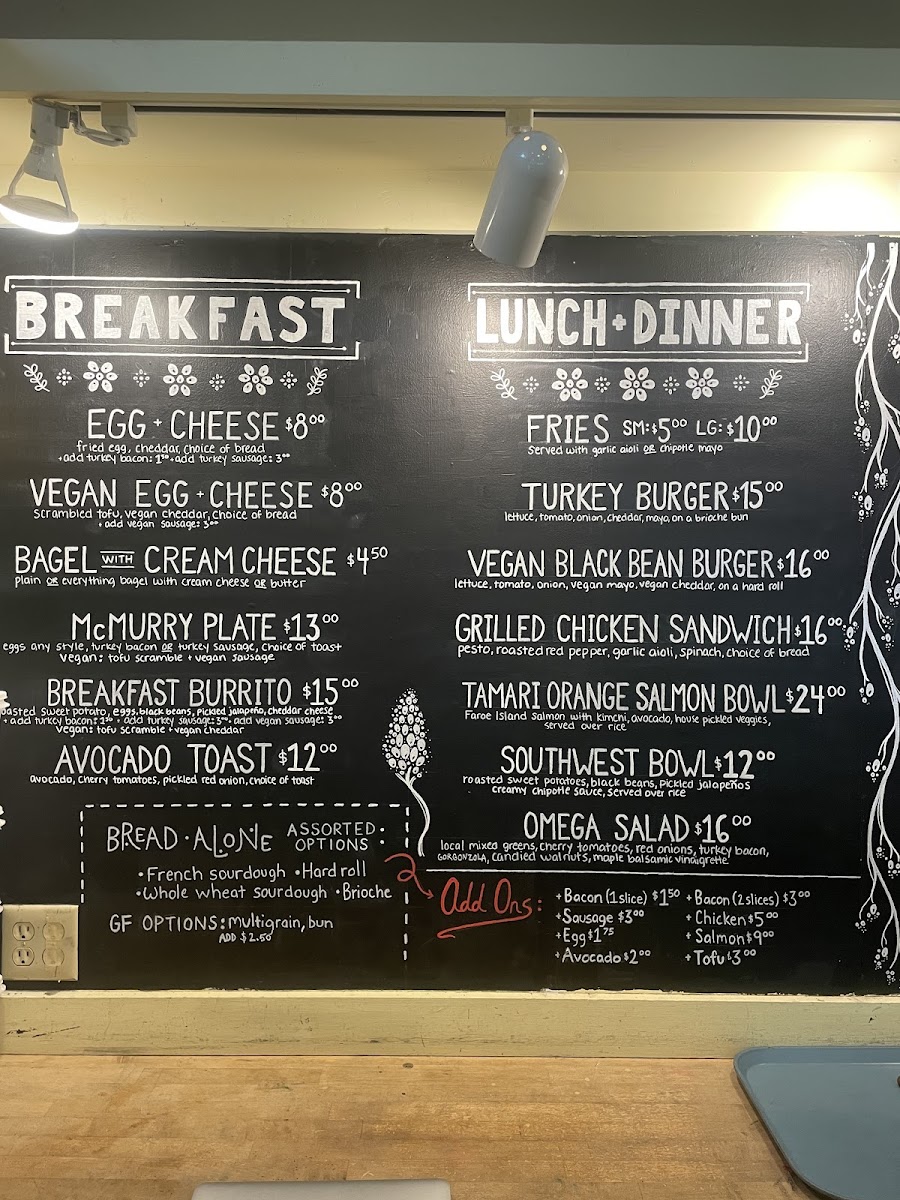 BREAKFAST
EGG + CHEESE $8.00
fried egg, cheddar, choice of bread
+add turkey bacon: 1.50 +add turkey sausage: 3.00
VEGAN EGG + CHEESE $8.00
scrambled tofu, vegan cheddar, choice of bread
+ add vegan sausage: 3.00
BAGEL WITH CREAM CHEESE $4.50
plain OR everything bagel with cream cheese OR butter
McMURRY PLATE $13.00
eggs any style, turkey bacon OR turkey sausage, choice of toast
vegan: tofu scramble + vegan sausage
BREAKFAST BURRITO $15.00
oasted sweet potato, eggs, black beans, pickled jalapeño, cheddar cheese
+ add turkey bacon: 1.50 + add turkey sausage: 3.00 + add vegan sausage: 3.00
vegan: tofu scramble + vegan cheddar
AVOCADO TOAST $12.00
avocado, cherry tomatoes, pickled red onion, choice of toast
BREAD·ALONE ASSORTED OPTIONS:
·French sourdough ·Hard roll
·Whole wheat sourdough ·Brioche
GF OPTIONS: multigrain, bun
ADD $2.50
LUNCH + DINNER
FRIES SM: $5.00 LG: $10.00
Served with garlic aioli OR chipotle mayo
TURKEY BURGER $15.00
lettuce, tomato, onion, cheddar, mayo, on a brioche bun
VEGAN BLACK BEAN BURGER $16.00
lettuce, tomato, onion, vegan mayo, vegan cheddar, on a hard roll
GRILLED CHICKEN SANDWICH $16.00
pesto, roasted red pepper, garlic aioli, spinach, choice of bread
TAMARI ORANGE SALMON BOWL $24.00
Faroe Island Salmon with kimchi, avocado, house pickled veggies,
served over rice
SOUTHWEST BOWL $12.00
roasted sweet potatoes, black beans, pickled jalapeños
creamy chipotle sauce, served over rice
OMEGA SALAD $16.00
local mixed greens, cherry tomatoes, red onions, turkey bacon,
GORGONZOLA, candied walnuts, maple balsamic vinaigrette
Add Ons:
+Bacon (1 slice) $1.50 +Bacon (2 slices) $3.00
+Sausage $3.00 +Chicken $5.00
+Egg $1.75 +Salmon $9.00
+Avocado $2.00 +Tofu $3.00